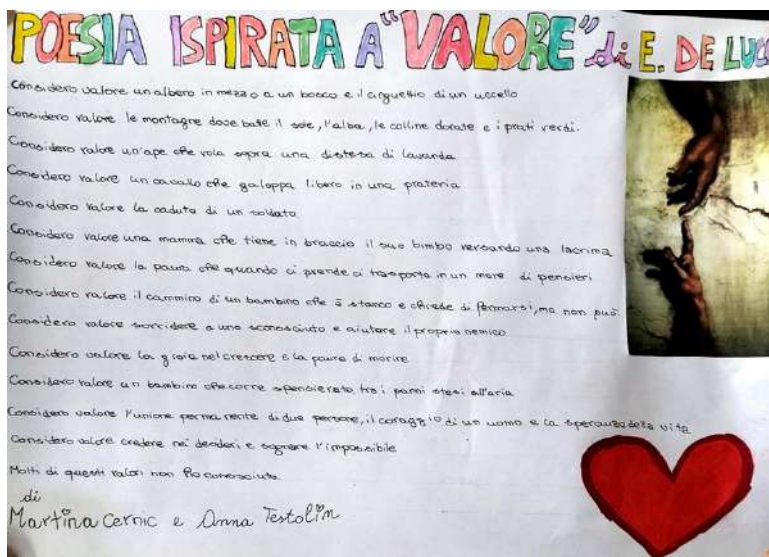 POESIA ISPIRATA A "VALORE" di E. DE LUCA
Considero valore un albero in mezzo a un bosco e il cinguettio di un uccello
Considero valore le montagne dove batte il sole, l'alba, le colline dorate e i prati verdi.
Considero valore un'ape che vola sopra una distesa di lavanda
Considero valore un cavallo che galoppa libero in una prateria
Considero valore la caduta di un soldato
Considero valore una mamma che tiene in braccio il suo bimbo versando una lacrima
Considero valore la paura che quando ci prende ci trasporta in un mare di pensieri
Considero valore il cammino di un bambino che è stanco e chiede di fermarsi, ma non può.
Considero valore sorridere a uno sconosciuto e aiutare il proprio nemico
Considero valore la gioia nel crescere e la paura di morire
Considero valore un bambino che corre spensierato tra i panni stesi all'aria
Considero valore l'unione permanente di due persone, il coraggio di un uomo e la speranza della vita
Considero valore credere nei desideri e sognare l'impossibile
Molti di questi valori non ho conosciuto.
di
Martina Cernic e Anna Testolin